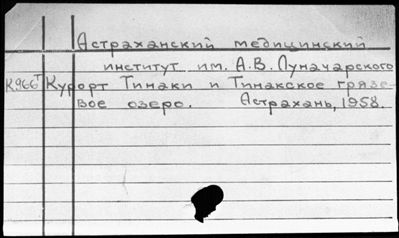 Астраханский медицинский
институт им. А.В. Луначарского
К966Т Курорт Тинаки и Тинакское грязе-
вое озеро. Астрахань, 1958.